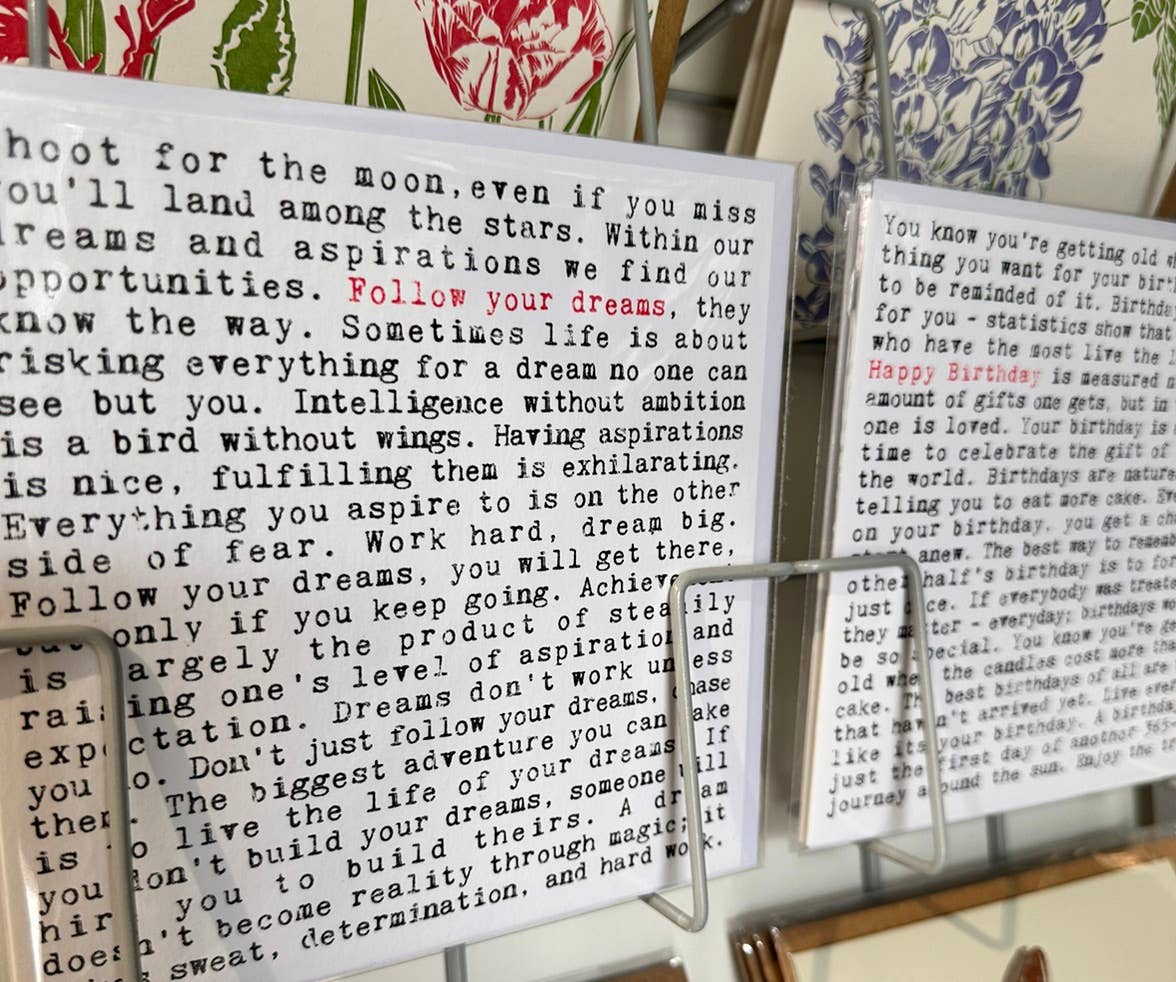 hoot for the moon,even if you miss
ou'll land among the stars. Within our
dreams and aspirations we find our
opportunities. Follow your dreams, they
know the way. Sometimes life is about
risking everything for a dream no one can
see but you. Intelligence without ambition
is a bird without wings. Having aspirations
is nice, fulfilling them is exhilarating.
Everything you aspire to is on the other
side of fear. Work hard, dream big.
Follow your dreams, you will get there,
but only if you keep going. Achievement
is largely the product of steadily
raising one's level of aspiration and
expectation. Dreams don't work unless
you do. Don't just follow your dreams, chase
them. The biggest adventure you can take
is to live the life of your dreams. If
you don't build your dreams, someone will
hire you to build theirs. A dream
doesn't become reality through magic; it
sweat, determination, and hard work.
You know you're getting old
thing you want for your
to be reminded of it.
for you - statistics show that
who have the most live the
Happy Birthday is measured
amount of gifts one gets, but in
one is loved. Your birthday is
time to celebrate the gift of
the world. Birthdays are
telling you to eat more cake.
on your birthday. you get a
anew. The best way to
other half's birthday is to
just once. If everybody was
they matter - everyday; birthdays
be so special. You know you're
old when the candles cost more
cake. The best birthdays of all are
that haven't arrived yet. Live
like its your birthday. A
just the first day of another
journey around the sun. Enjoy the